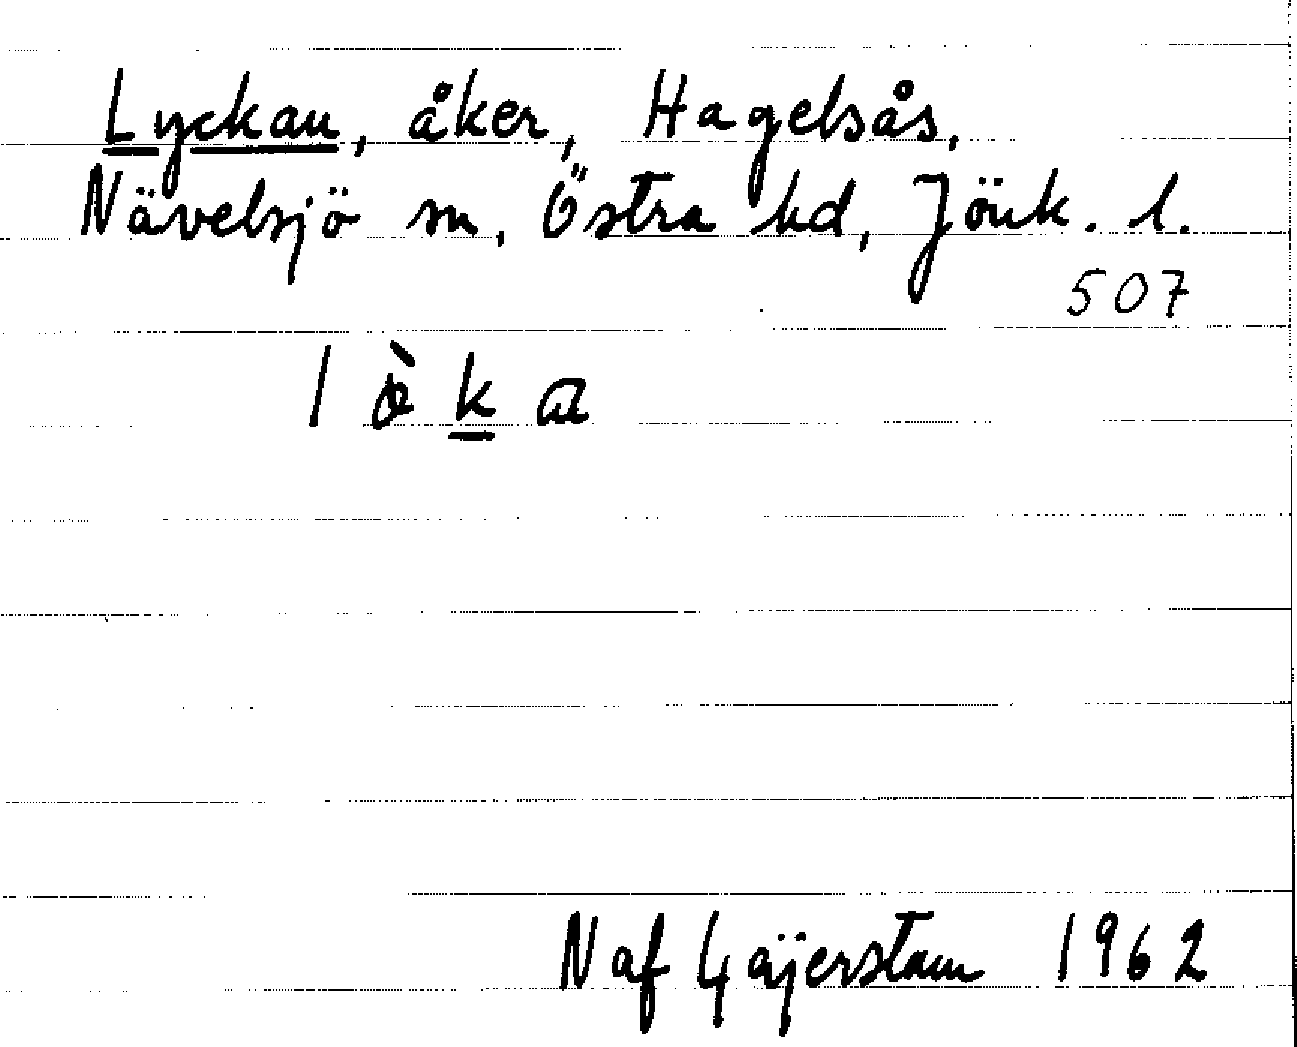 Lyckan, åker, Hagelsås,
Nävelsjö sn, Östra hd, Jönk. l.
507
l ò k a
N af Gäijerstam 1962